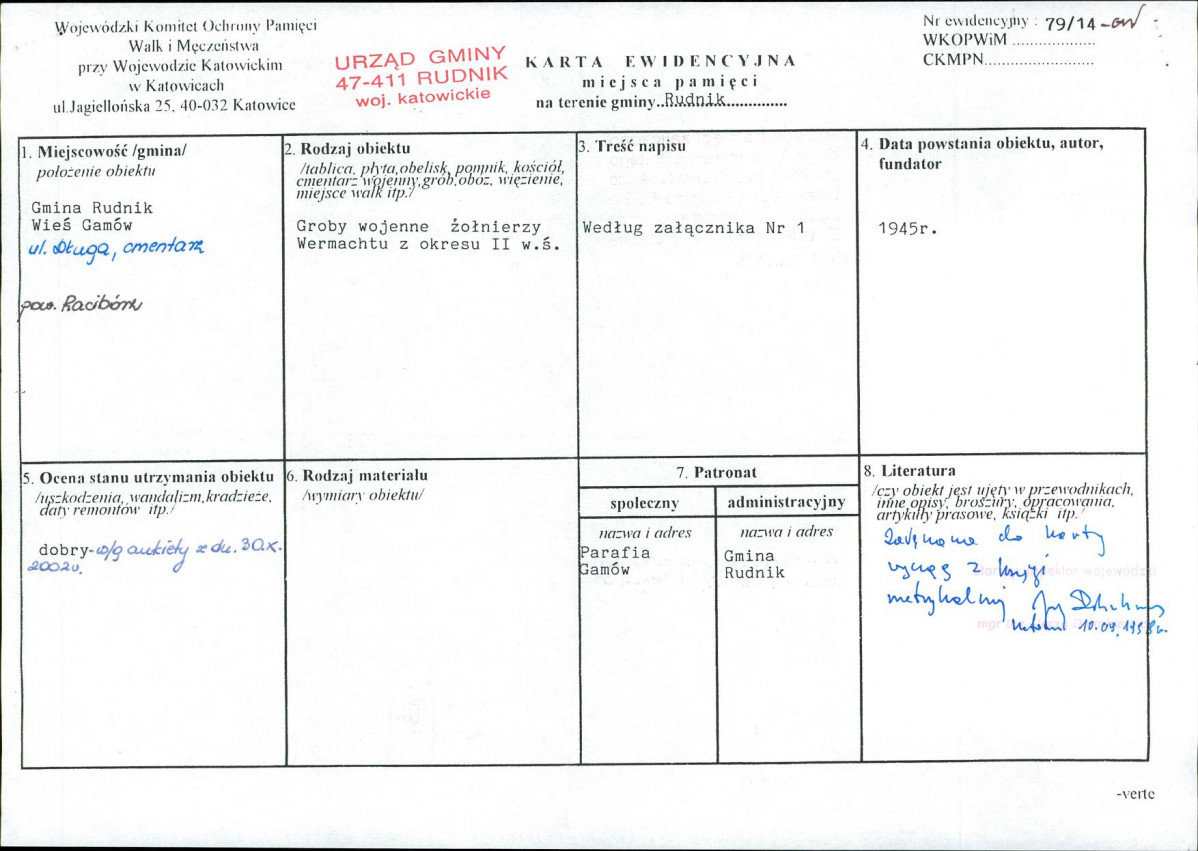 Wojewódzki Komitet Ochrony Pamięci
Walk i Męczeństwa
przy Wojewodzie Katowickim
w Katowicach
ul.Jagiellońska 25, 40-032 Katowice
URZĄD GMINY
47-411 RUDNIK
woj. katowickie
KARTA EWIDENCYJNA
miejsca pamięci
na terenie gminy..Rudnik...............
Nr ewidencyjny : 79/14
WKOPWiM ...................
CKMPN.........................
1. Miejscowość /gmina/
położenie obiektu
Gmina Rudnik
Wieś Gamów
ul. Długa, cmentarz
pow. Racibórz
2. Rodzaj obiektu
/tablica, płyta,obelisk, pomnik, kościół,
cmentarz wojenny,grób,obóz, więzienie,
miejsce walk itp./
Groby wojenne żołnierzy
Wermachtu z okresu II w.ś.
3. Treść napisu
Według załącznika Nr 1
4. Data powstania obiektu, autor,
fundator
1945r.
5. Ocena stanu utrzymania obiektu
/uszkodzenia, wandalizm,kradzieże,
daty remontów itp./
dobry-w/g ankiety z dn. 30.X.
2002r.
6. Rodzaj materiału
/wymiary obiektu/
7. Patronat
społeczny
nazwa i adres
Parafia
Gamów
administracyjny
nazwa i adres
Gmina
Rudnik
8. Literatura
/czy obiekt jest ujęty w przewodnikach,
inne opisy, broszury, opracowania,
artykuły prasowe, książki itp./
do karty
wyciąg z księgi
metrykalnej
10.09.1998r.
-verte